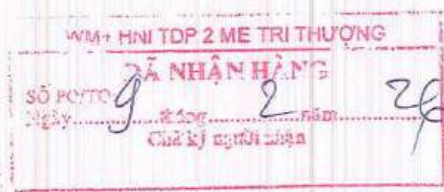 WM+ HNI TDP 2 ME TRI THƯỢNG
ĐÃ NHẬN HÀNG
SỐ PO/TO
Ngày 9 tháng 2 năm 26
Chữ ký người nhận